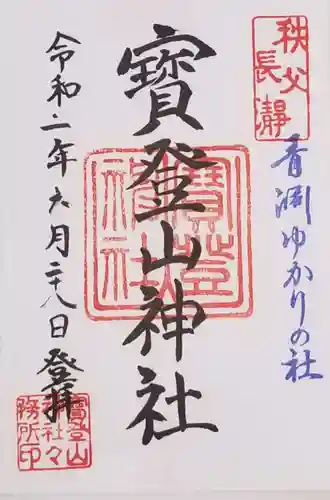 秩父
長瀞
青淵ゆかりの社
寶登山神社
寶登山
神社
令和二年六月二十八日
登拝
寶登山
神社々
務所印